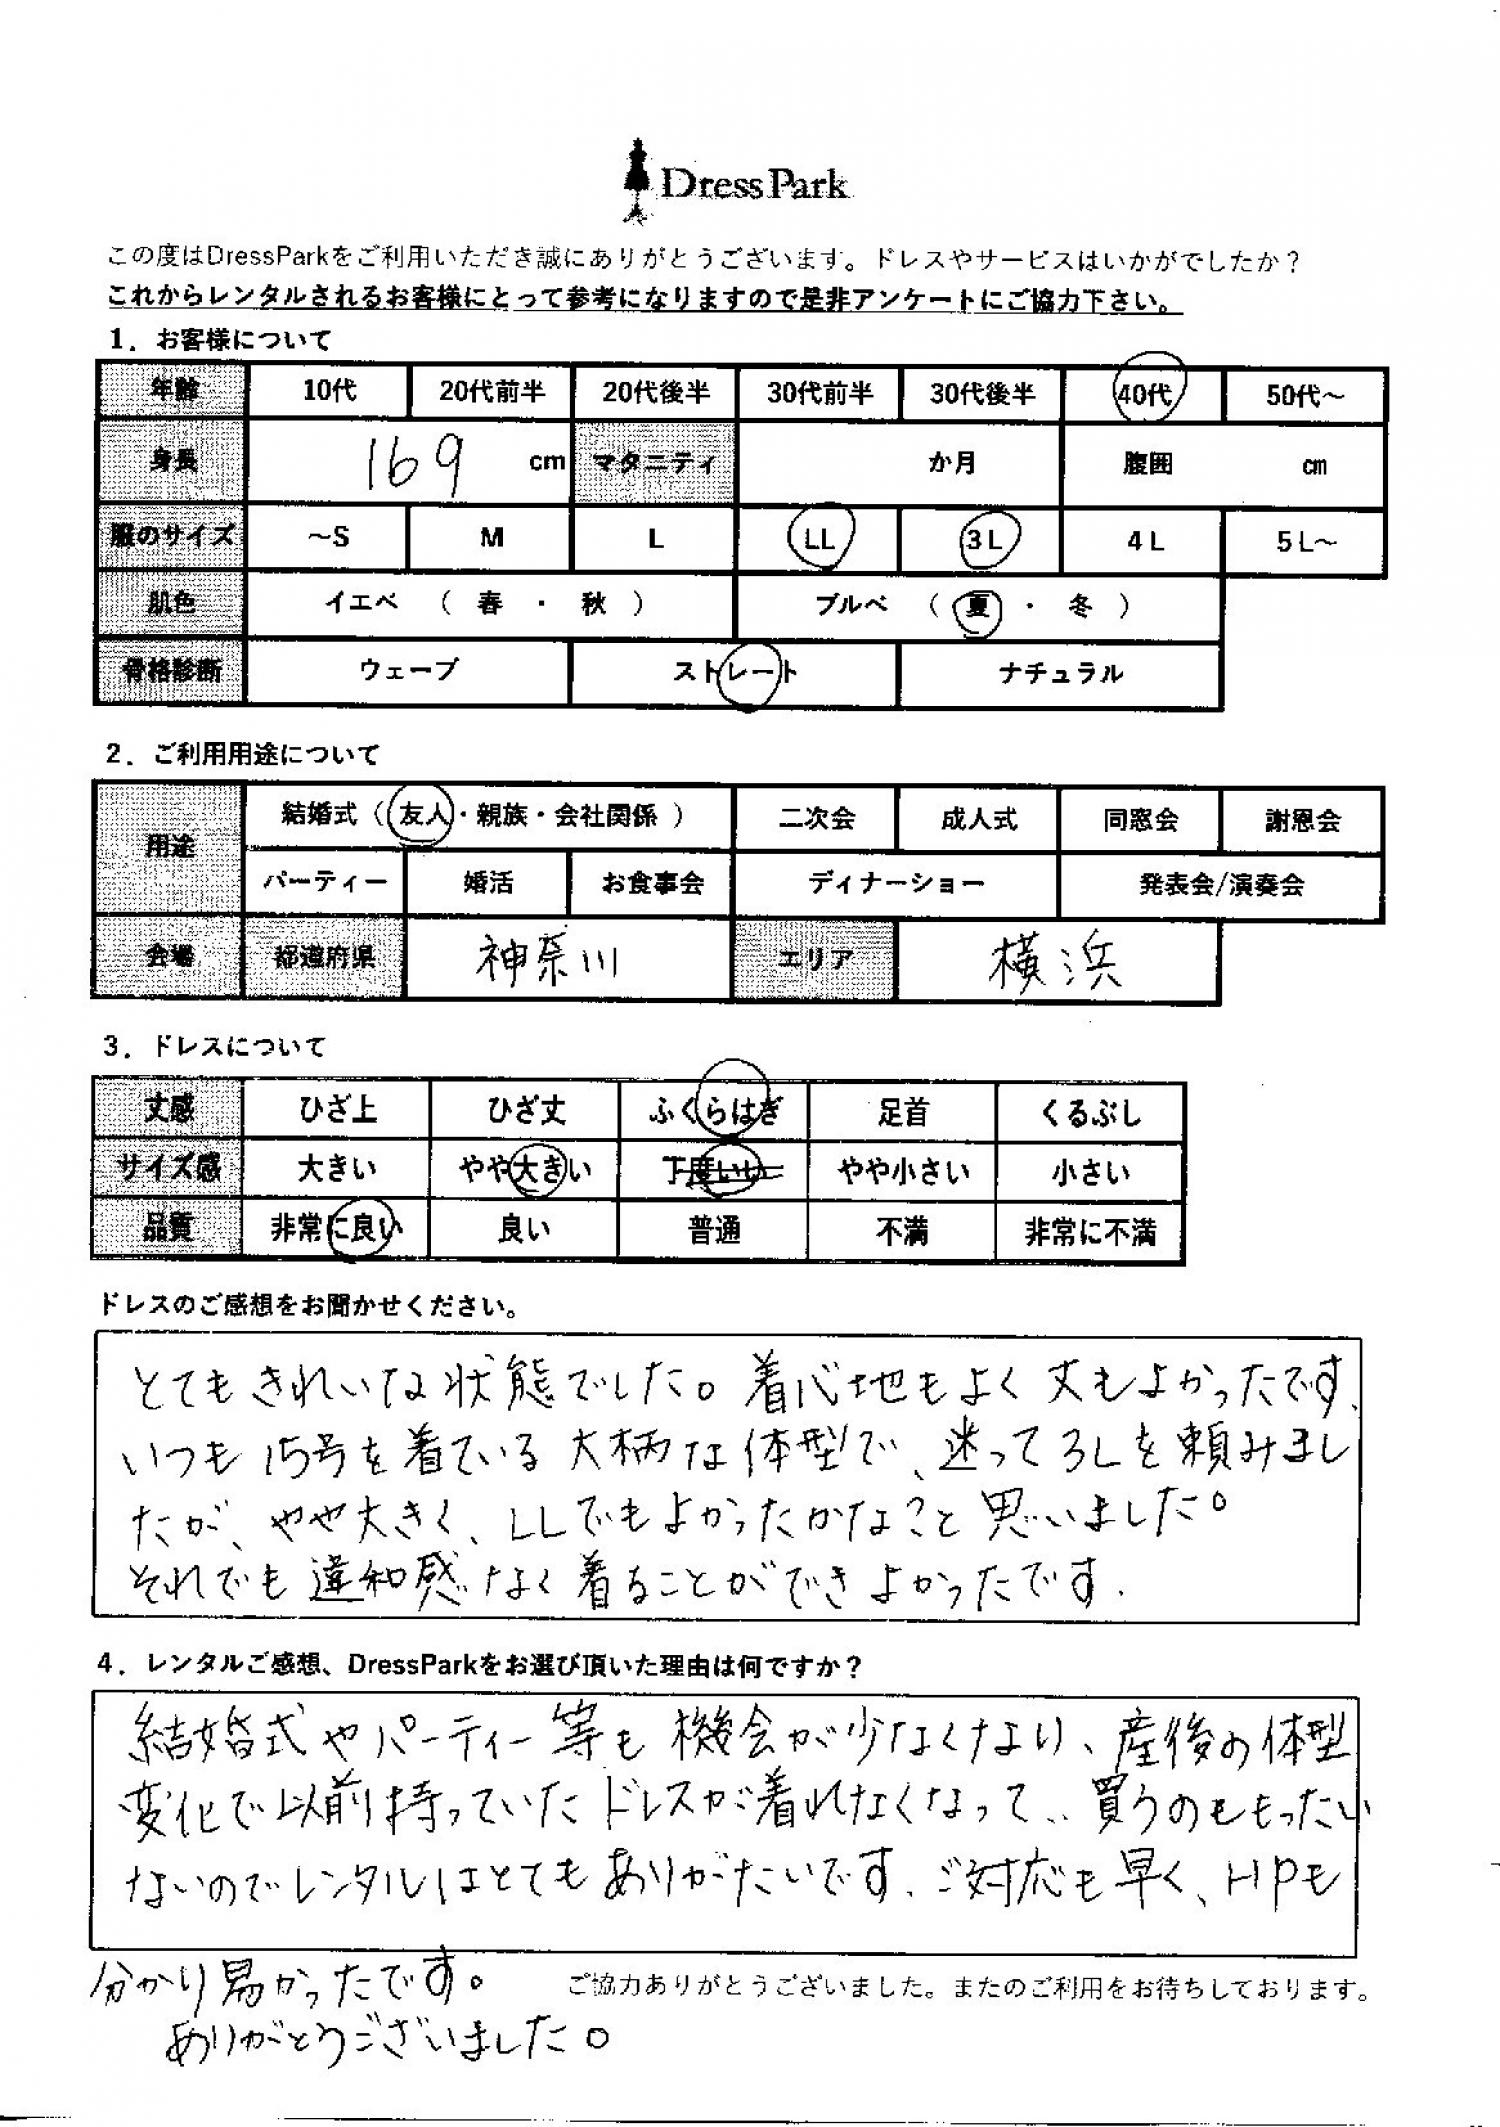 DressPark
この度はDressParkをご利用いただき誠にありがとうございます。ドレスやサービスはいかがでしたか？
これからレンタルされるお客様にとって参考になりますので是非アンケートにご協力下さい。
1．お客様について
年齢 10代 20代前半 20代後半 30代前半 30代後半 40代 50代～
身長 169 cm マタニティ か月 腹囲 cm
服のサイズ ～S M L LL 3L 4L 5L～
肌色 イエベ （ 春 ・ 秋 ） ブルベ （ 夏 ・ 冬 ）
骨格診断 ウェーブ ストレート ナチュラル
2．ご利用用途について
用途 結婚式（ 友人・親族・会社関係 ） 二次会 成人式 同窓会 謝恩会
パーティー 婚活 お食事会 ディナーショー 発表会/演奏会
会場 都道府県 神奈川 エリア 横浜
3．ドレスについて
丈感 ひざ上 ひざ丈 ふくらはぎ 足首 くるぶし
サイズ感 大きい やや大きい 丁度いい やや小さい 小さい
品質 非常に良い 良い 普通 不満 非常に不満
ドレスのご感想をお聞かせください。
とてもきれいな状態でした。着心地もよく丈もよかったです、
いつも15号を着ている大柄な体型で、迷って3Lを頼みまし
たが、やや大きく、LLでもよかったかな？と思いました。
それでも違和感なく着ることができよかったです．
4．レンタルご感想、DressParkをお選び頂いた理由は何ですか？
結婚式やパーティー等も機会が少なくなり、産後の体型
変化で以前持っていたドレスが着れなくなって、、買うのももったい
ないのでレンタルはとてもありがたいです、ご対応も早く、HPも
分かり易かったです。
ご協力ありがとうございました。またのご利用をお待ちしております。
ありがとうございました。